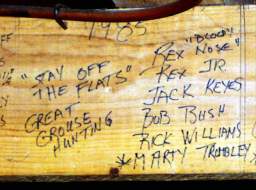 1985
"STAY OFF
THE FLATS"
GREAT
GROUSE
HUNTING
"BLOODY
REX NOSE"
REX JR.
JACK KEYES
BOB BUSH
RICK WILLIAMS
*MARTY TROMBLEY